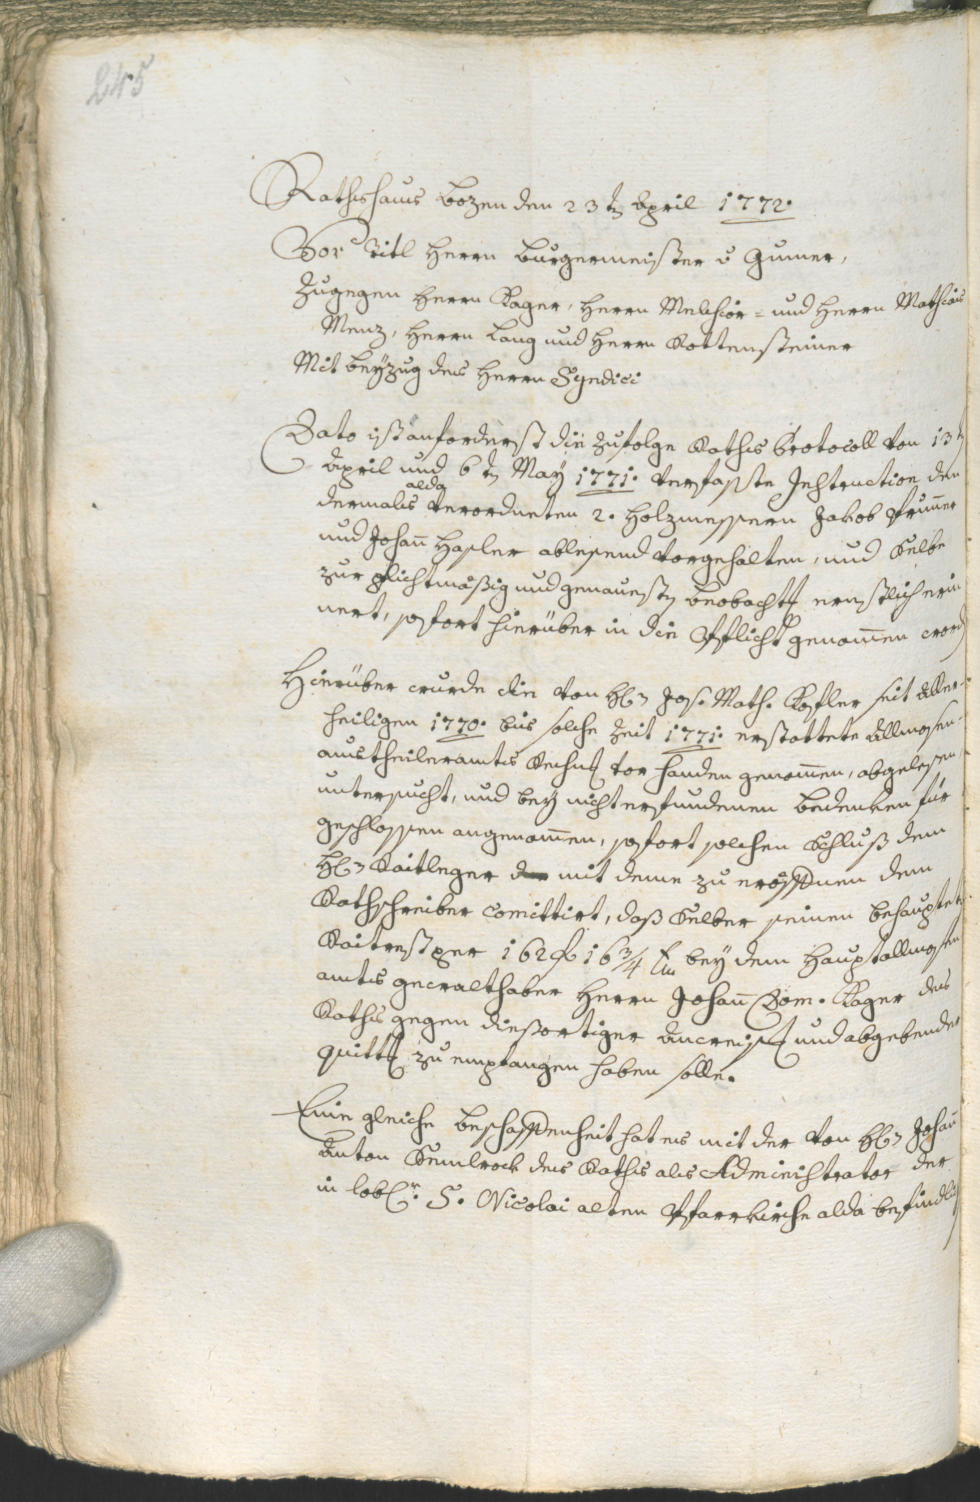 245
Rathshaus Bozen den 23 tn April 1772.
Vor Titl Herrn Burgermeister v Gumer,
Zugegen Herrn Kager, Herrn Melchior = und Herrn Mathias
Menz, Herrn Lang und Herrn Rottensteiner
Mit beÿzug des Herrn Syndici
Dato ist anforderst die zufolge Raths Protocoll von 13 tn
April und 6 tn Maÿ 1771. verfasste Instruction den
dermals alda verordneten 2. Holzmessern Jakob Prunner
und Johan̄ Hasler ablesend vorgehalten, und Selbe
zur plichtmäßig und genauesten beobacht ernstlich erin
nert, sofort hierüber in die Pflicht genom̄en word
Hierüber wurde die von H Jos. Math. Kofler seit Aller-
heiligen 1770. bis solche Zeit 1771. erstattete Allmosen-
austheileramts Rechnung vor handen genom̄en, abgelesen,
untersucht, und beÿ nicht erfundenen bedenken für
geschlossen angenom̄en, sofort solchen Schluß dem
H Raitleger mit deme zu eröffnen dem
Rathschreiber comittirt, daß Selber seinen behauptet
Raitrest per 162 f 16 3/4 bey dem Hauptallmosen
amts gewalthaber Herrn Johan̄ Dom. Kager des
Raths gegen diesortiger Anweisung und abgebender
quitt zu empfangen haben solle.
Eine gleiche beschaffenheit hat es mit der von H Johan̄
Anton des Raths als Administrator der
in lobl S. Nicolai alten Pfarrkirche alda befindli